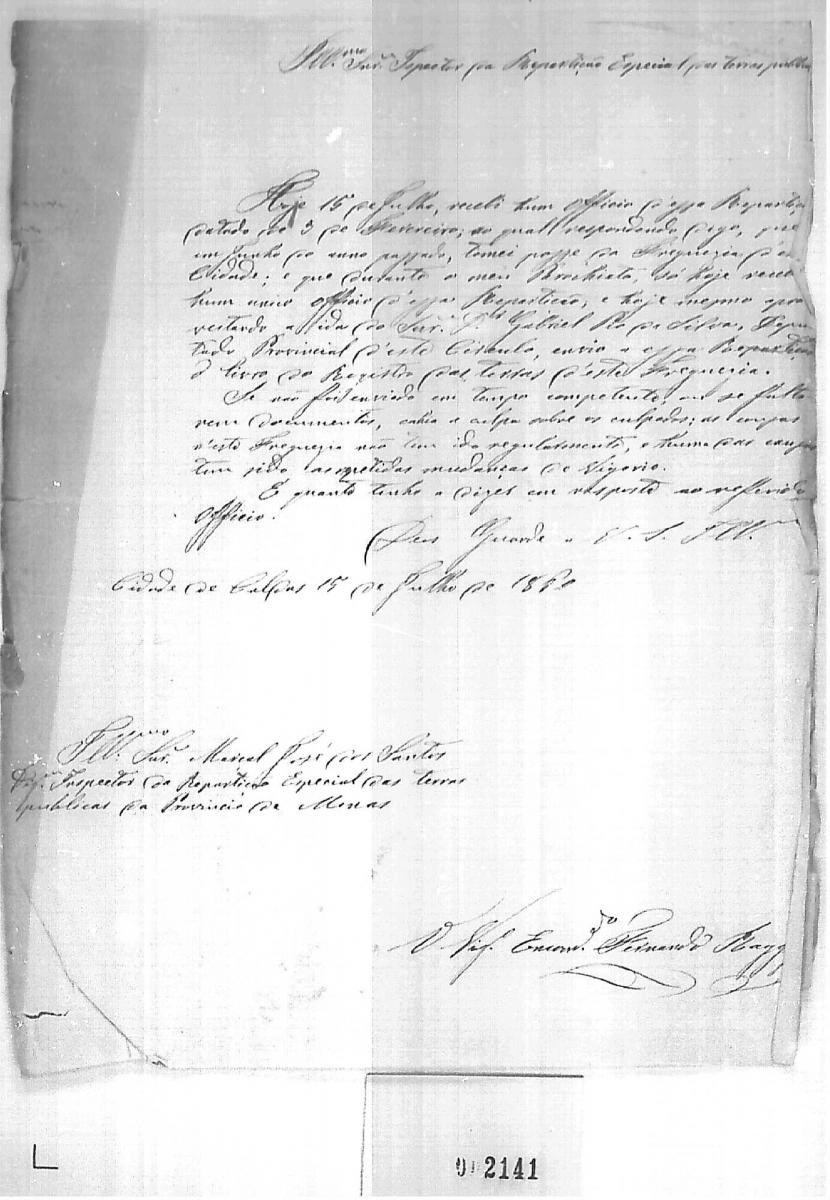 Ill.mo Snr. Ispector da Repartição Especial das terras publicas
Hoje 15 de Julho, recebi hum officio d'essa Repartição
datado de 3 de Fevereiro; ao qual respondendo digo, que
em Junho do anno passado, tomei posse da Freguezia d'esta
Cidade; e que durante o meu só hoje recebi
hum unico officio d'essa Repartição; e hoje mesmo apro
veitando a ida do Snr. Gabriel Pio da Silva, Depu
tado Provincial d'este Circulo, envio a essa Repartição
o livro do Registro das terras d'esta Freguezia.
Se não foi enviado em tempo competente, ou se falta
rem documentos, cahia a culpa sobre os culpados; as cousas
n'esta Freguezia não tem ido regularmente, e huma das causas
tem sido as mudanças de Vigario.
E quanto tenho a dizer em resposta ao refferido
officio.
Deos Guarde a V. S. Ill.ma
Cidade de Caldas 15 de Julho de
Ill.mo Snr. Marcal José dos Santos
Dig.mo Inspector da Repartição Especial das terras
publicas da Provincia de Minas
O Vig. Encom.do Fernando
2141